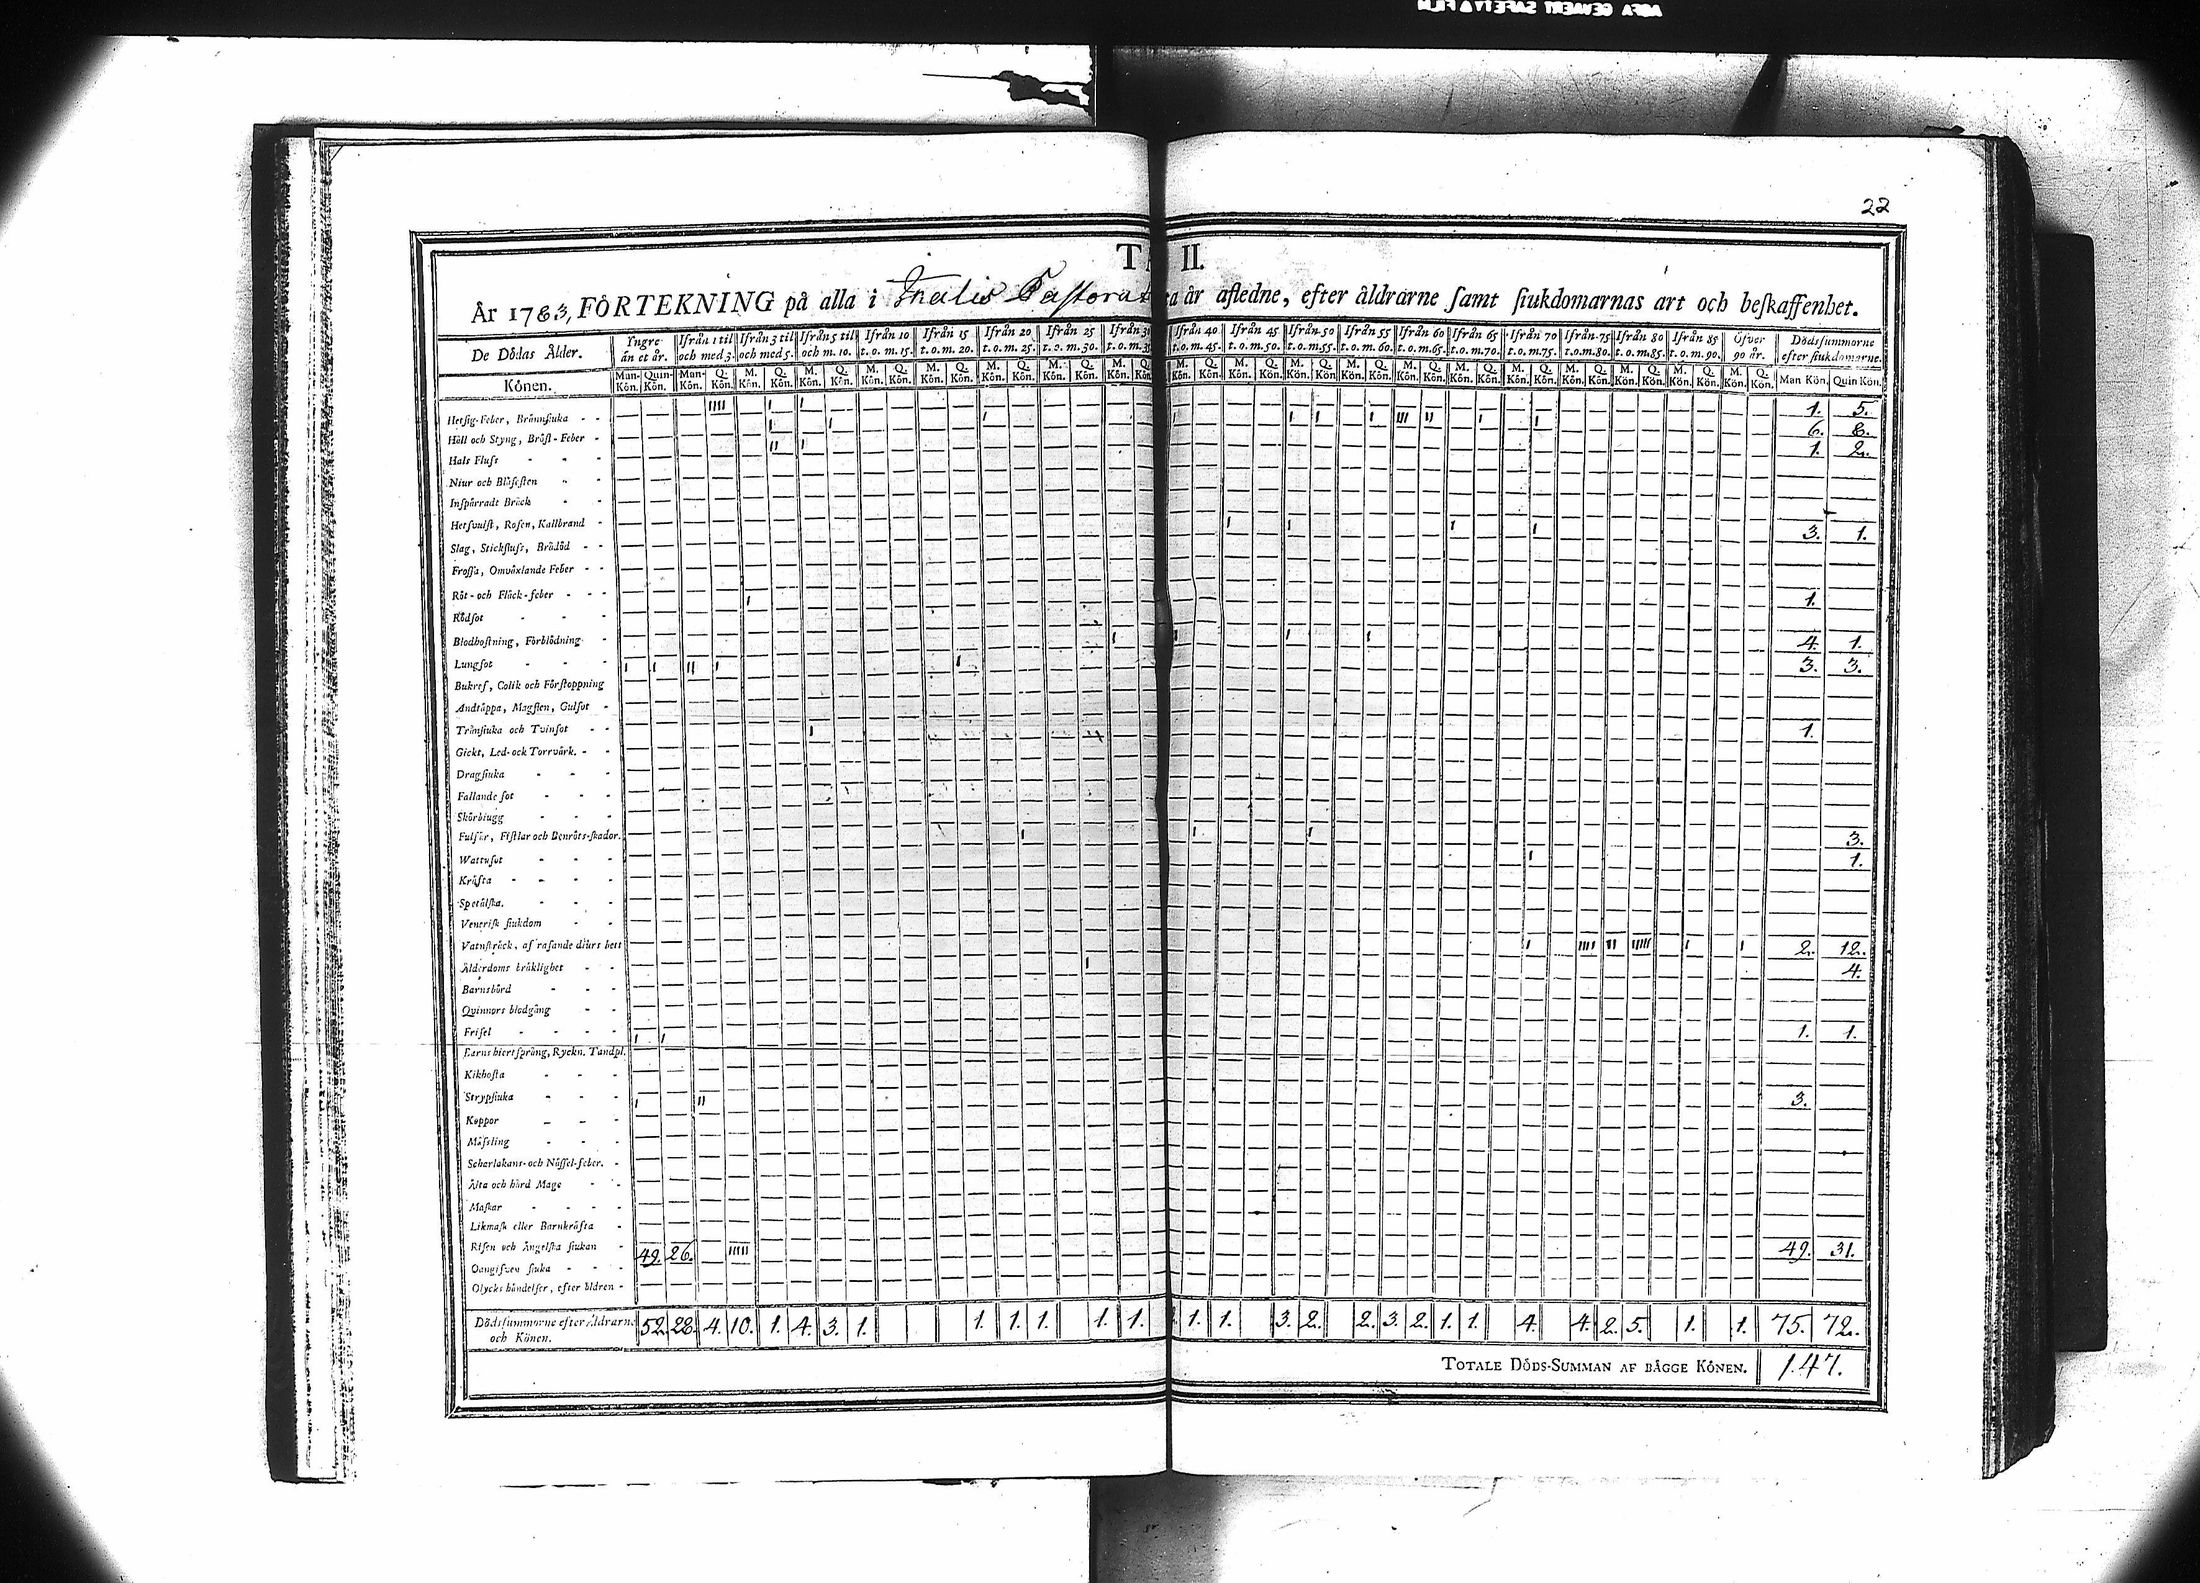 22
TA II.
År 1783, FÖRTEKNING på alla i Thalis Pastorat ta år afledne, efter åldrarne samt siukdomarnas art och beskaffenhet.
De Dödas Ålder. Yngre än et år. Ifrån 1 til och med 3. Ifrån 3 til och med 5. Ifrån 5 til och m. 10. Ifrån 10 t. o. m. 15. Ifrån 15 t. o. m. 20. Ifrån 20 t. o. m. 25. Ifrån 25 t. o. m. 30. Ifrån 30 t. o. m. 35 Ifrån 40 t. o. m. 45. Ifrån 45 t. o. m. 50. Ifrån 50 t. o. m. 55. Ifrån 55 t. o. m. 60. Ifrån 60 t. o. m. 65. Ifrån 65 t. o. m. 70. Ifrån 70 t. o. m. 75. Ifrån 75 t. o. m. 80. Ifrån 80 t. o. m. 85. Ifrån 85 t. o. m. 90. Öfver 90 år. Dödssummorne efter siukdomarne.
Könen. Man-Kön. Quin-Kön. Man-Kön. Q. Kön. M. Kön. Q. Kön. M. Kön. Q. Kön. M. Kön. Q. Kön. M. Kön. Q. Kön. M. Kön. Q. Kön. M. Kön. Q. Kön. M. Kön. Q. Kön. M. Kön. Q. Kön. M. Kön. Q. Kön. M. Kön. Q. Kön. M. Kön. Q. Kön. M. Kön. Q. Kön. M. Kön. Q. Kön. M. Kön. Q. Kön. M. Kön. Q. Kön. M. Kön. Q. Kön. M. Kön. Q. Kön. M. Kön. Q. Kön. Man Kön. Quin Kön.
Hetsig-Feber, Brännsiuka 1. 5.
Håll och Styng, Bröst-Feber 6. 8.
Hals Fluss 1. 2.
Niur och Blåsesten
Inspärradt Bråck
Hetsvulst, Rosen, Kallbrand
Slag, Stickfluss, Brådöd 3. 1.
Frossa, Omväxlande Feber
Röt- och Fläck-feber
Rödsot 1.
Blodhostning, Förblödning
Lungsot 4. 1.
Bukref, Colik och Förstoppning 3. 3.
Andtäppa, Magsten, Gulsot
Trånsiuka och Tvinsot
Gickt, Led- ock Torrvärk. 1.
Dragsiuka
Fallande sot
Skörbiugg
Fulsår, Fistlar och Benröts-skador.
Wattusot 3.
Kräfta 1.
Spetälska.
Venerisk siukdom
Vatnskräck, af rasande diurs bett
Ålderdoms bräklighet 2. 12.
Barnsbörd 4.
Qvinnors blodgång
Frisel
Barns hiertsprång, Ryckn. Tandpl. 1. 1.
Kikhosta
Strypsiuka
Koppor 3.
Mässling
Scharlakans- och Nässel-feber.
Älta och hård Mage
Maskar
Likmask eller Barnkräfta
Risen och Ängelska siukan
Oangifven siuka 49. 26. 49. 31.
Olycks händelser, efter bldren
Dödssummorne efter Åldrarne och Könen. 52. 28. 4. 10. 1. 4. 3. 1. 1. 1. 1. 1. 1. 2. 1. 1. 3. 2. 2. 3. 2. 1. 1. 4. 4. 2. 5. 1. 1. 75. 72.
TOTALE DÖDS-SUMMAN AF BÄGGE KÖNEN. 147.